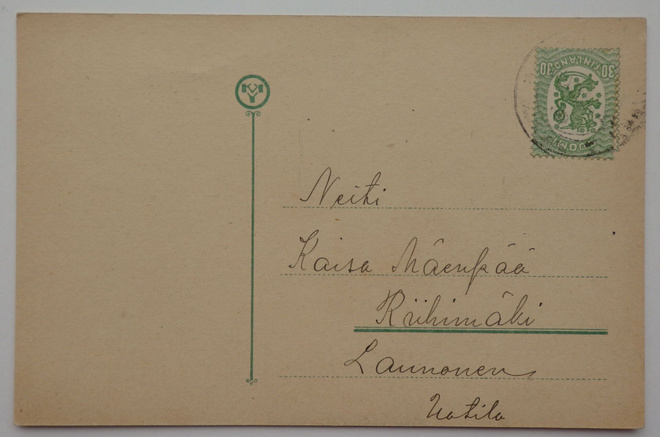 30 FINLAND 30
SUOMI
Neiti
Kaisa Mäenpää
Riihimäki
Launonen
Uotila